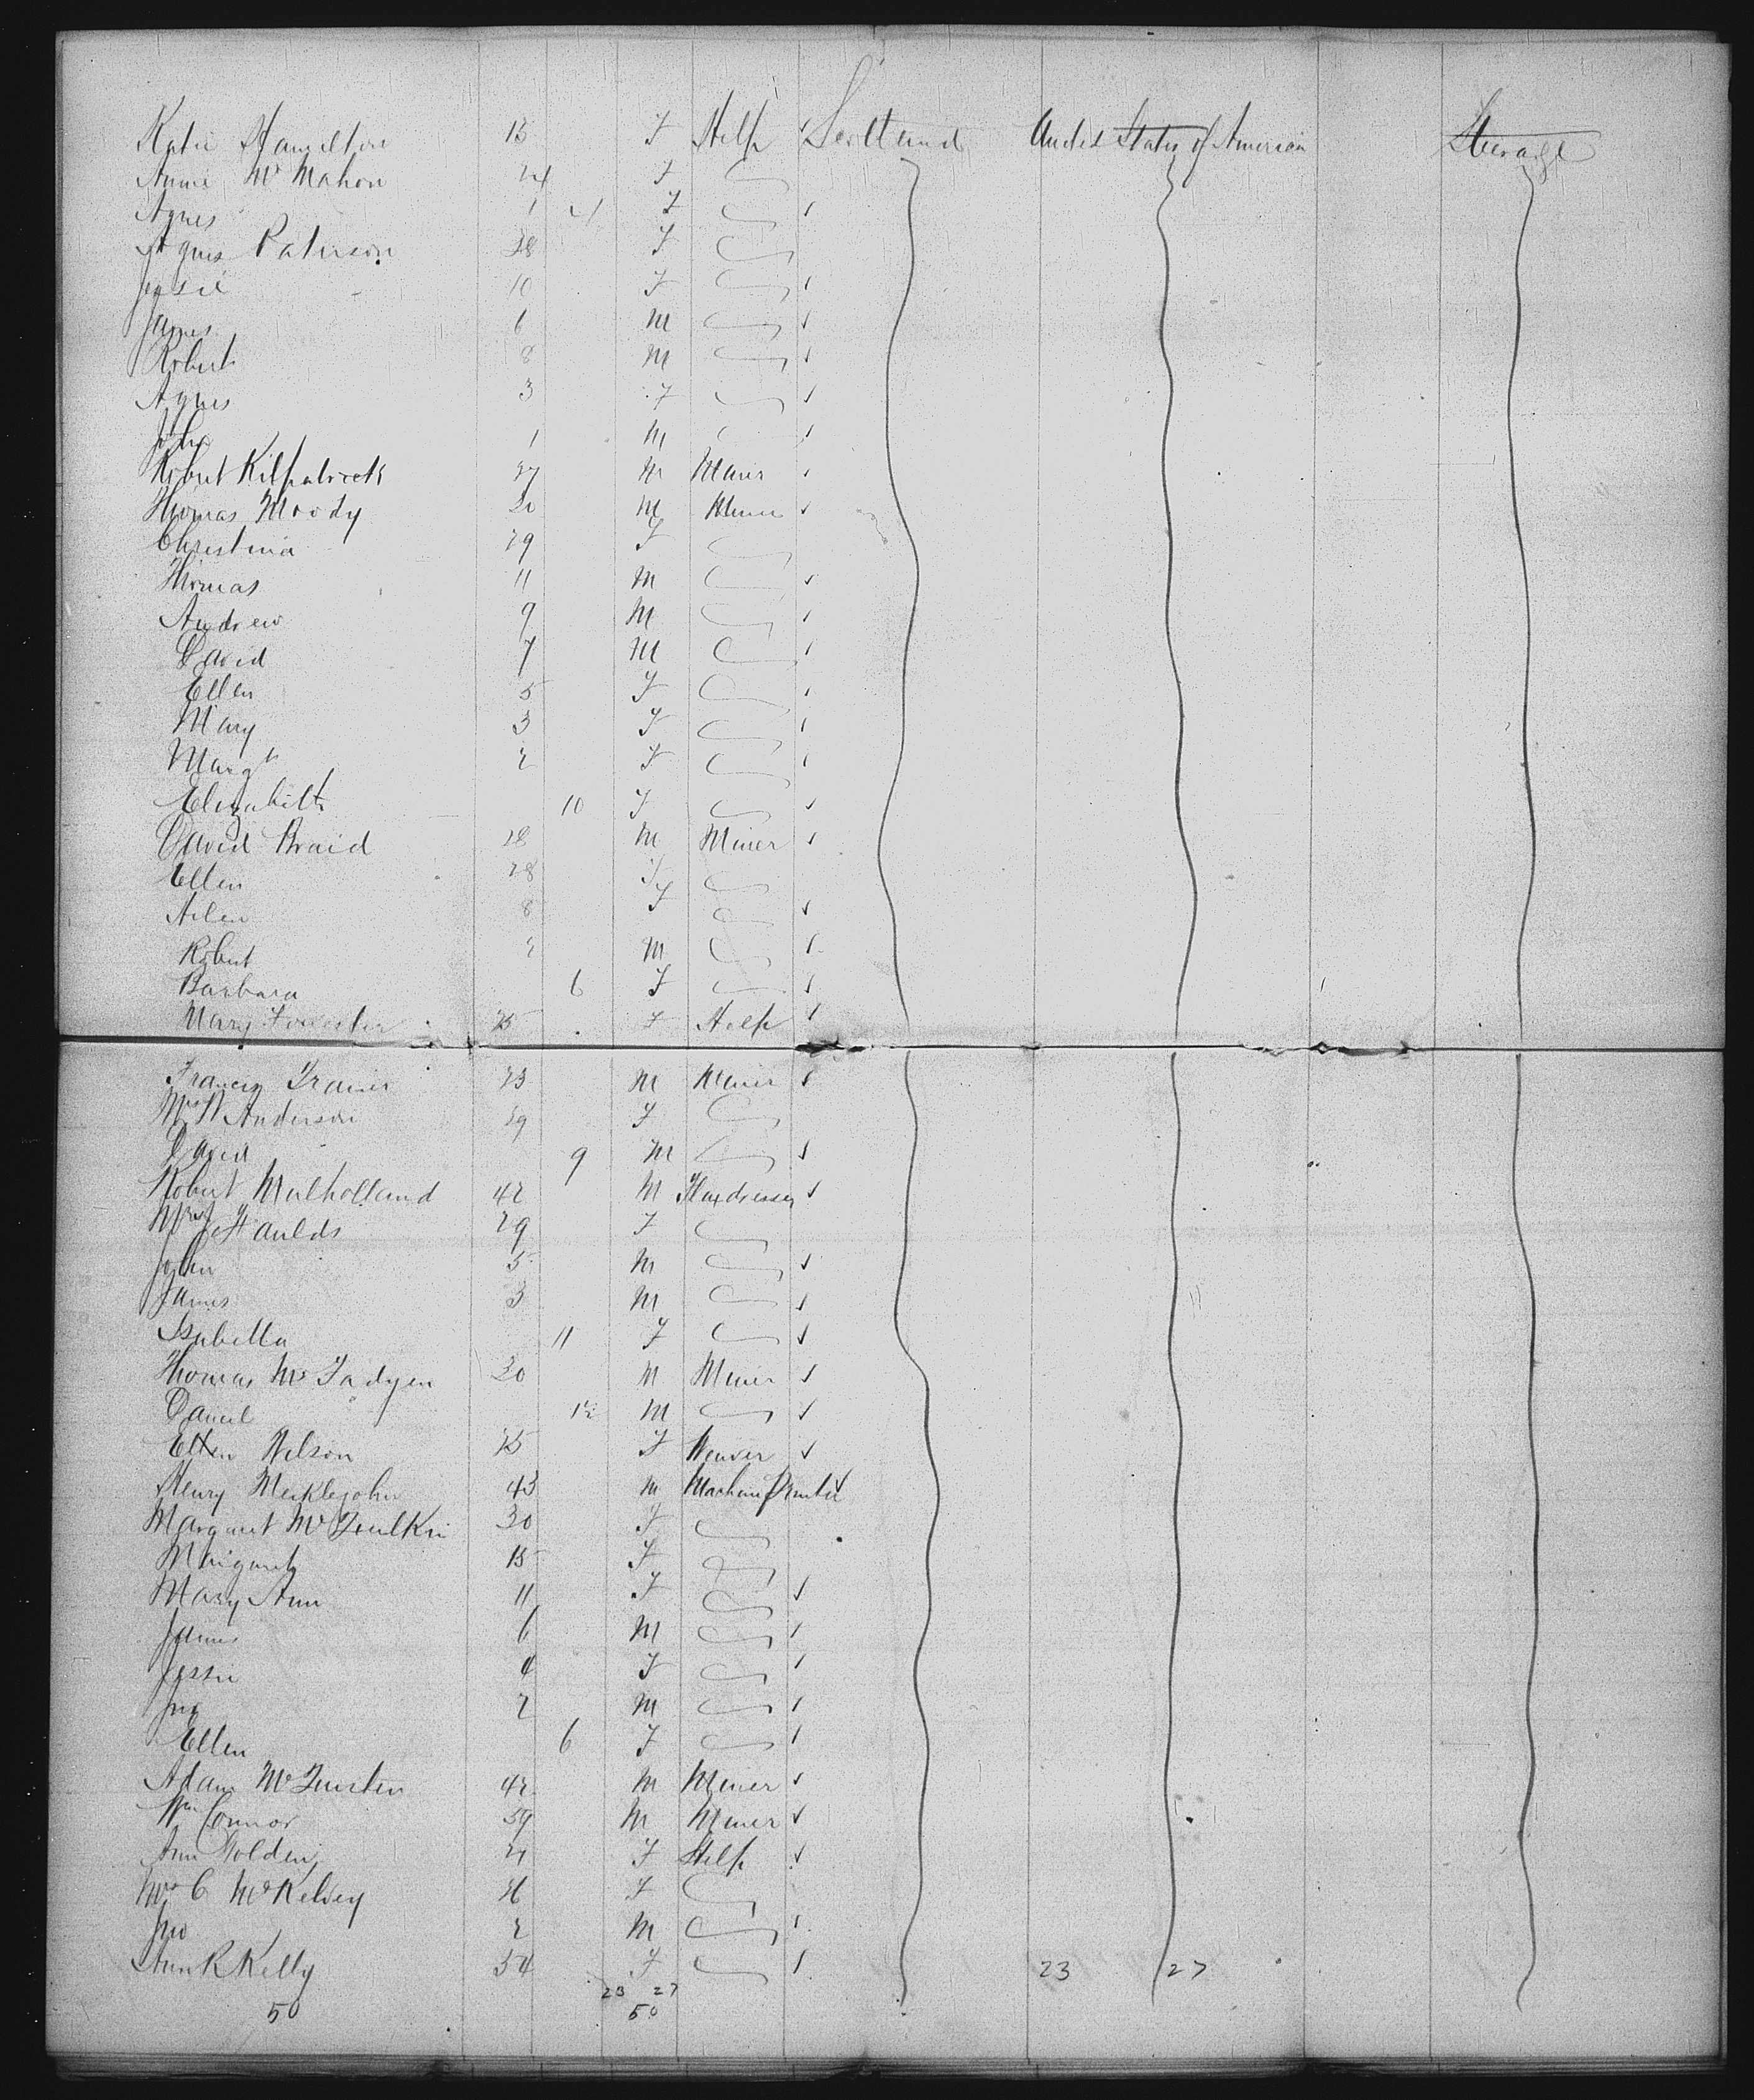 Katie Hamilton 15 F Help Scotland United States of America Steerage
Annie McMahon 24 F
Agnes 1 4 F
Agnes Paterson 28 F
Jessie 10 F
James 6 M
Robert 8 M
Agnes 3 F
John 1 M
Robert Kilpatrick 27 M Miner
Thomas Moody 30 M Miner
Christina 29 F
Thomas 11 M
Andrew 9 M
David 7 M
Ellen 5 F
Mary 3 F
Margt 2 F
Elizabeth 10 F
David Braid 28 M Miner
Ellen 28 F
Helen 8 F
Robert 2 M
Barbara 6 F
Mary Forrester 25 F Help
Francis Trainer 23 M Miner
Mrs Anderson 29 F
David 9 M
Robert Mulholland 42 M Flaxdresser
Mrs J Haulds 29 F
John 5 M
James 3 M
Isabella 11 F
Thomas McFadyen 30 M Miner
Daniel M
Ellen Wilson 25 F Weaver
Henry Meiklejohn 43 M Machine Printer
Margaret 30 F
Margaret 15 F
Mary Ann 11 F
James 6 M
Jessie 4 F
Jno 2 M
Ellen 6 F
Adam 42 M Miner
Wm Connor 39 M Miner
Ann Golden 21 F Help
Mrs C McKelvey 26 F
Jno 2 M
Ann R Kelly 54 F 23 27
23 27
50 50